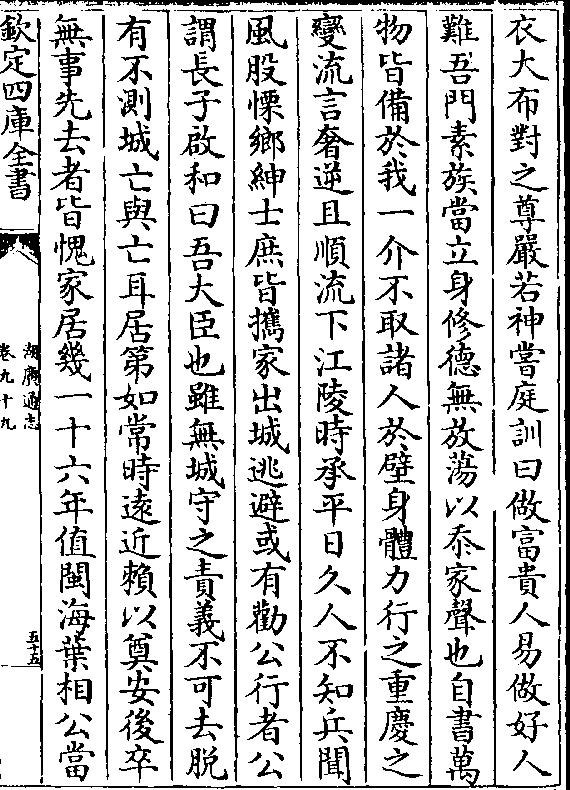 衣大布對之尊嚴若神嘗庭訓曰做富貴人易做好人
難吾門素族當立身修德無放蕩以忝家聲也自書萬
物皆備於我一介不取諸人於壁身體力行之重慶之
變流言奢逆且順流下江陵時承平日久人不知兵聞
風股慄鄉紳士庶皆攜家出城逃避或有勸公行者公
謂長子啟和曰吾大臣也雖無城守之責義不可去脱
有不測城亡與亡耳居第如常時逺近賴以奠安後卒
無事先去者皆愧家居幾一十六年值閩海葉相公當
欽定四庫全書
湖廣通志
卷九十九
五十五